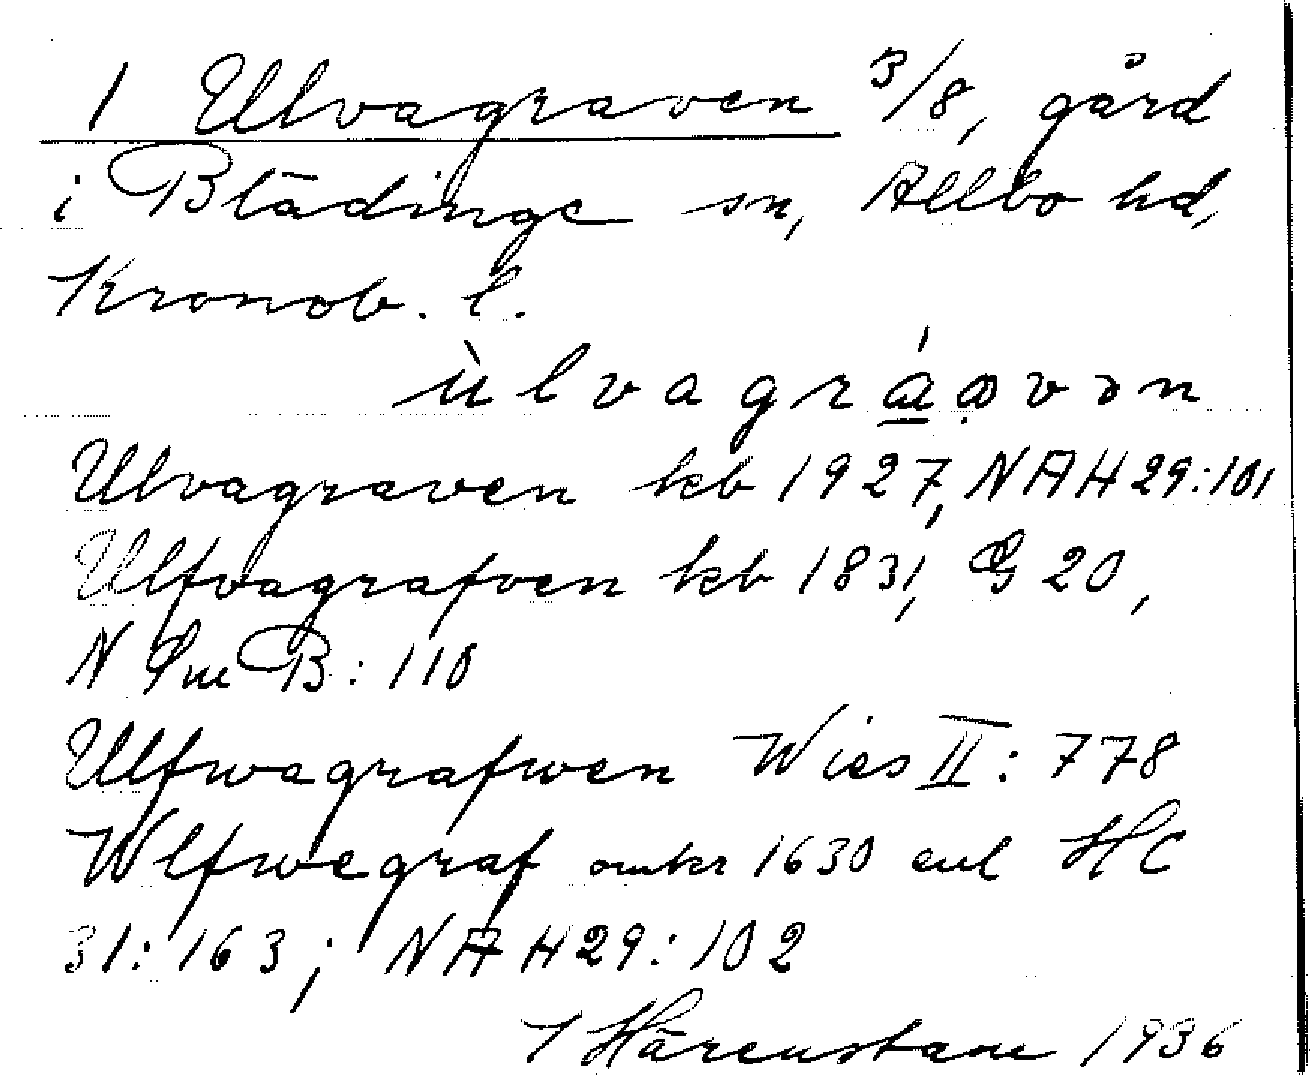 1 Ulvagraven 3/8, gård
i Blädinge sn, Allbo hd,
Kronob. l.
ùlvagráɑvən
Ulvagraven kb 1927, NAH 29:101
Ulfvagrafven kb 1831, G 20,
N Sm B: 110
Ulfwagrafwen Wies II: 778
Wlfwegraf omkr 1630 enl HC
31: 163; NAH 29: 102
I Härenstam 1936